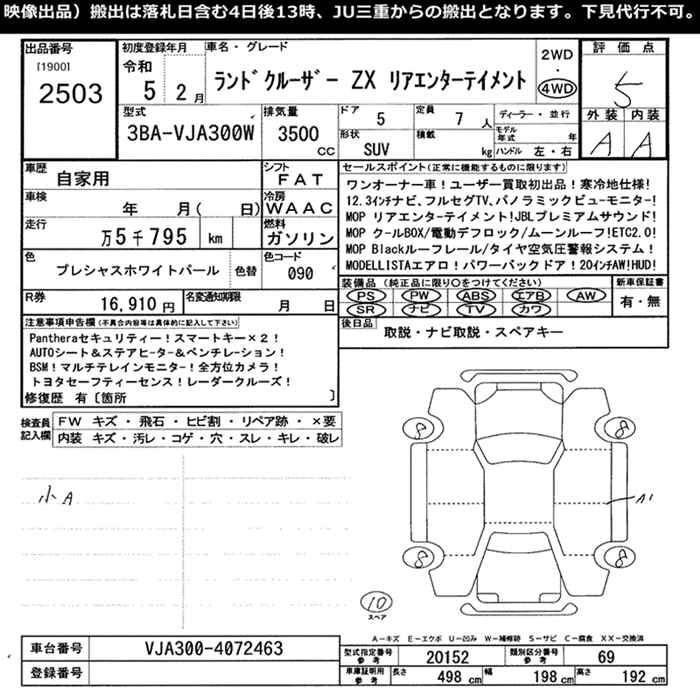 映像出品）搬出は落札日含む4日後13時、JU三重からの搬出となります。下見代行不可。
出品番号
[1900]
2503
初度登録年月
令和
5 2 月
車名・グレード
ランドクルーザー ZX リアエンターテイメント
2WD
・
4WD
評価点
5
外装 内装
A A
型式
3BA-VJA300W
排気量
3500
cc
ドア
5
定員
7 人
ディーラー・並行
モデル年式 年
形状
SUV
積載
kg
ハンドル 左・右
車歴
自家用
シフト
FAT
車検
年 月( 日)
冷房
WAAC
走行
万5千795 km
燃料
ガソリン
色
プレシャスホワイトパール
色替
色コード
090
R券
16,910 円
名変通知期限
月 日
セールスポイント(正常に機能するものに限ります)
ワンオーナー車！ユーザー買取初出品！寒冷地仕様！
12.3インチナビ、フルセグTV、パノラミックビューモニター！
MOP リアエンターテイメント！JBLプレミアムサウンド！
MOP クールBOX/電動デフロック/ムーンルーフ！ETC2.0！
MOP Blackルーフレール/タイヤ空気圧警報システム！
MODELLISTAエアロ！パワーバックドア！20インチAW！HUD！
装備品 (純正品に限り○をつけてください)
PS PW ABS エアB AW
SR ナビ TV カワ
新車保証書
有・無
後日品
取説・ナビ取説・スペアキー
注意事項申告欄 (不具合内容等は具体的に記入して下さい)
Pantheraセキュリティー！スマートキー×2！
AUTOシート&ステアヒーター&ベンチレーション！
BSM！マルチテレインモニター！全方位カメラ！
トヨタセーフティーセンス！レーダークルーズ！
修復歴 有〔箇所 〕
検査員記入欄
FW キズ・飛石・ヒビ割・リペア跡・×要
内装 キズ・汚レ・コゲ・穴・スレ・キレ・破レ
小A
8 8
A1
8 8
10
スペア
A-キズ E-エクボ U-凹み W-補修跡 S-サビ C-腐食 XX-交換済
車台番号
VJA300-4072463
登録番号
型式指定番号 参考
20152
類別区分番号 参考
69
車庫証明用 参考
長さ 498 cm 幅 198 cm 高さ 192 cm